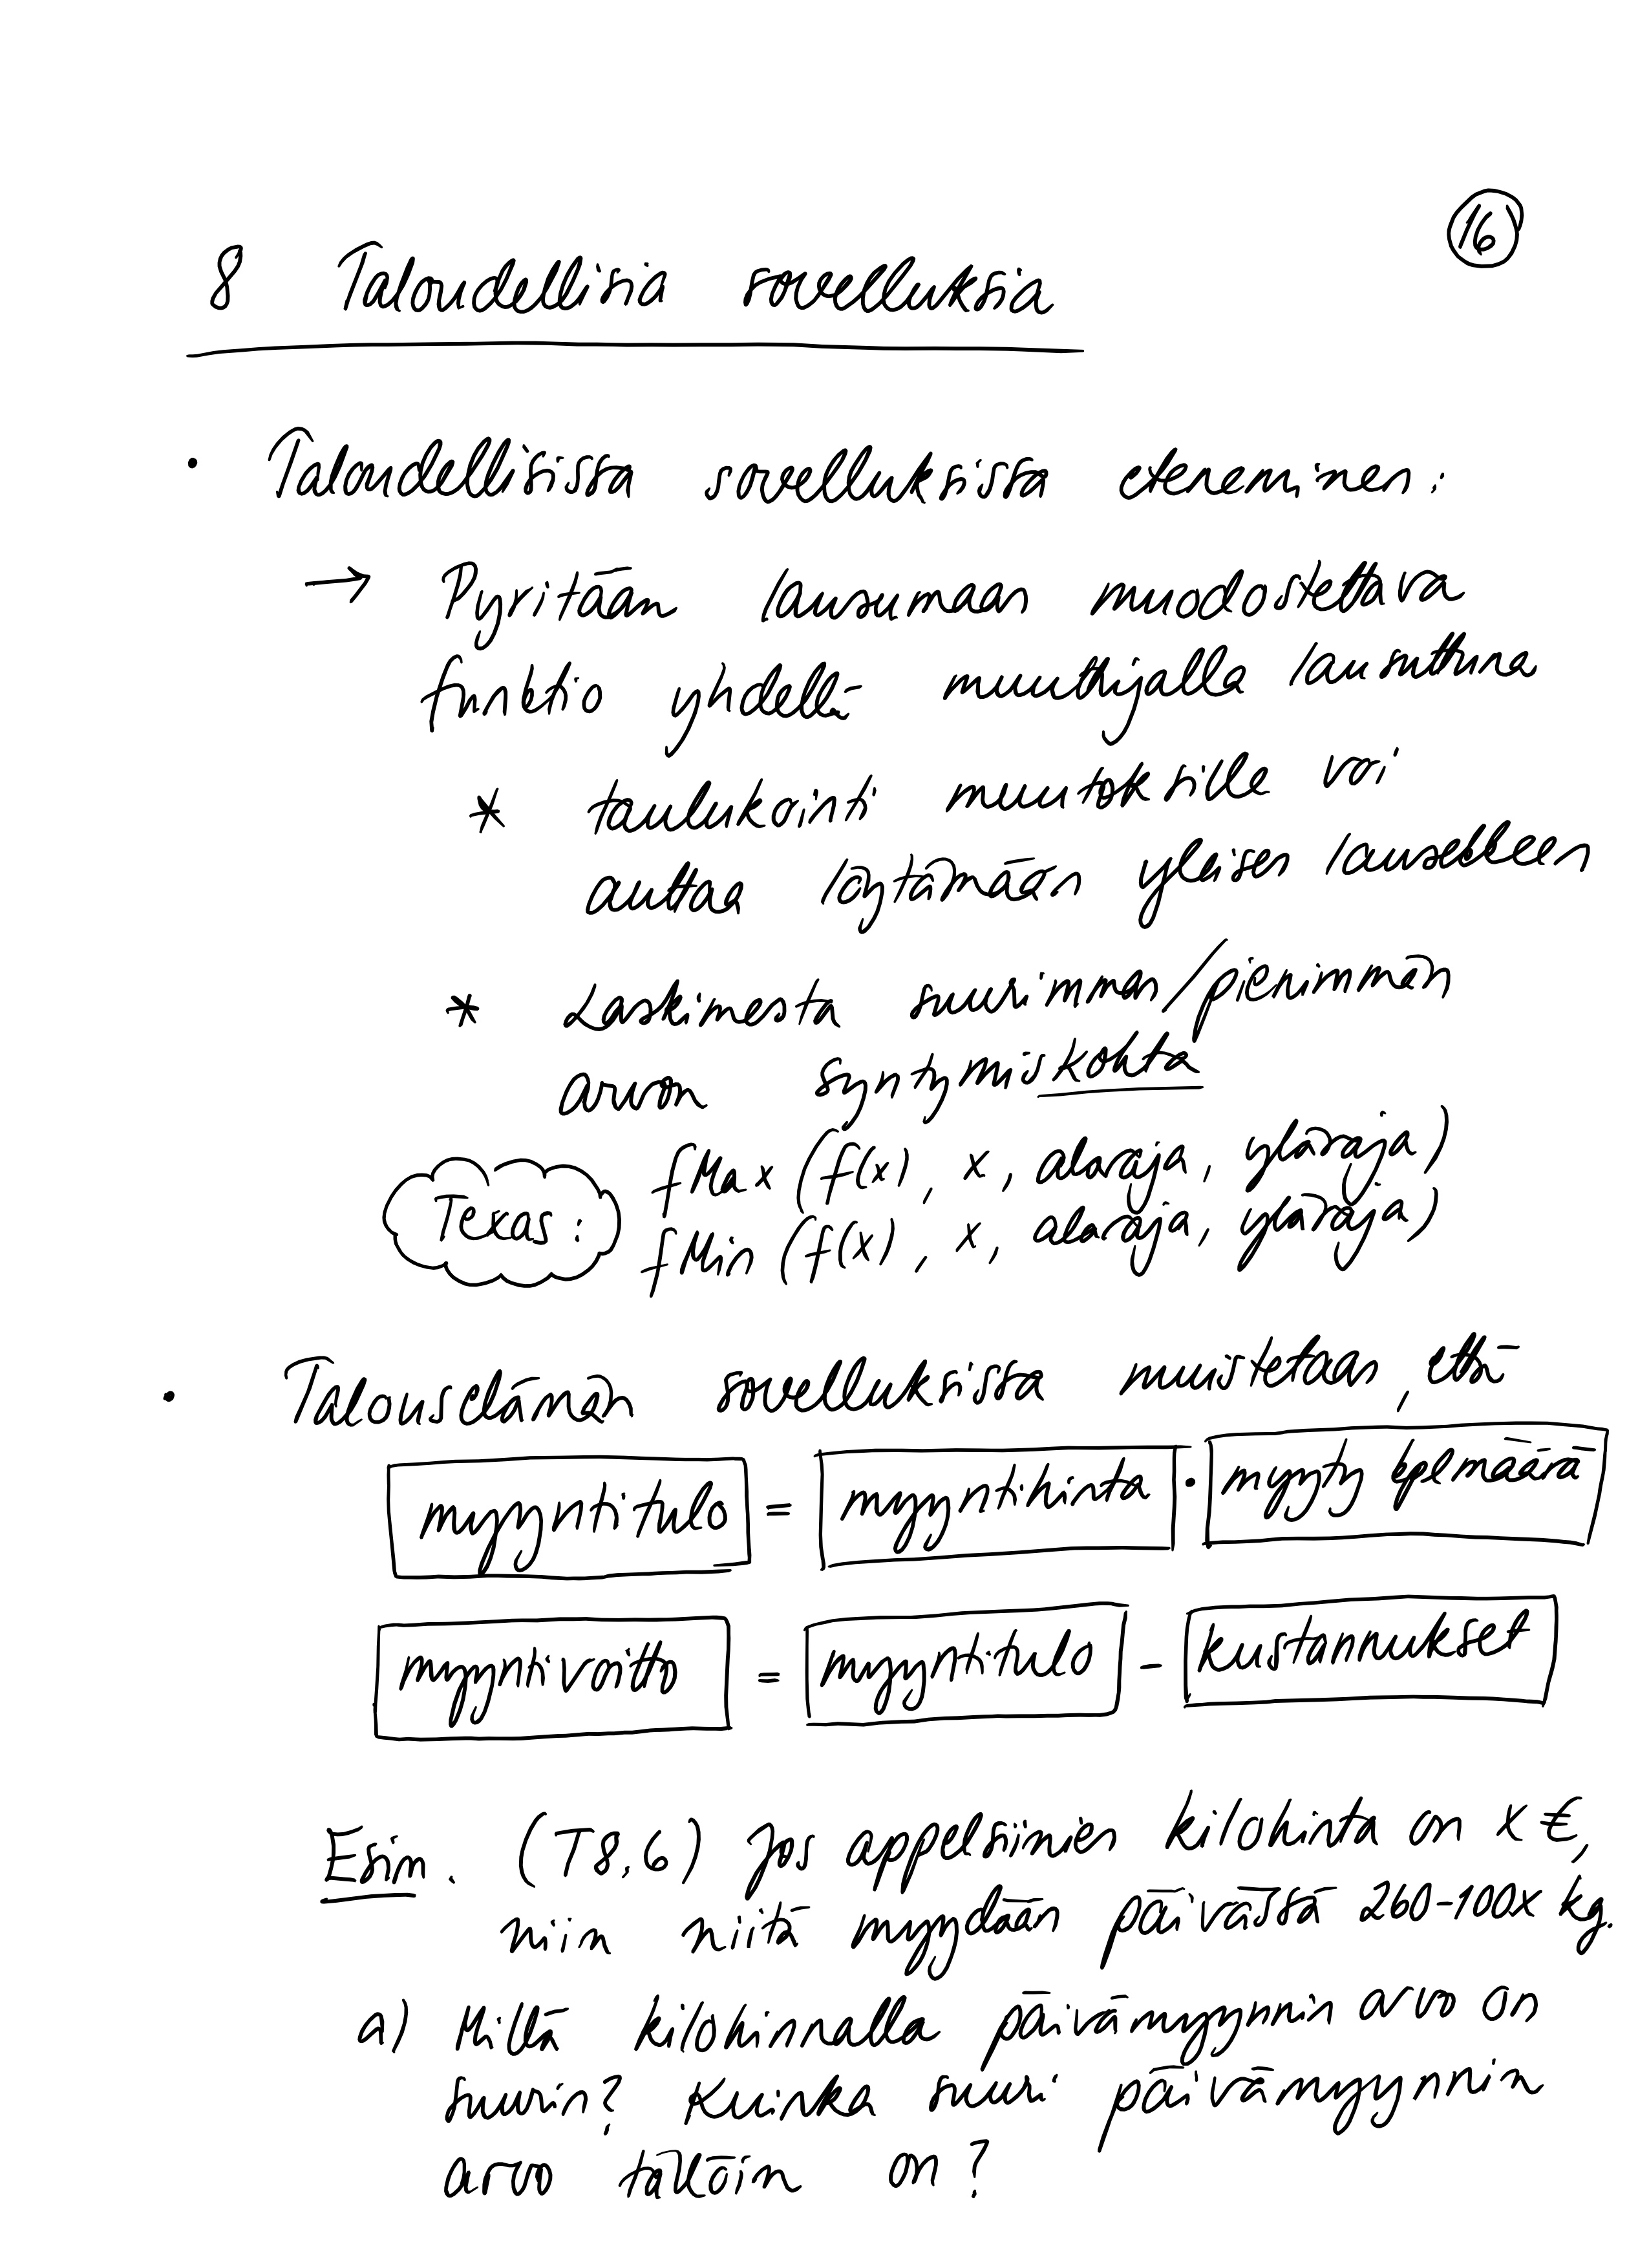 16
8 Taloudellisia sovelluksia
• Taloudellisissa sovelluksissa eteneminen:
→ Pyritään lausumaan muodostettava
funktio yhdellä muuttujalla lausuttuna
* taulukointi muutoksille voi
auttaa löytämään yleisen lausekkeen
* Laskimesta suurimman/pienimmän
arvon syntymiskohta
Texas: fMax (f(x), x, alaraja, yläraja)
fMin (f(x), x, alaraja, yläraja)
• Talouselämän sovelluksissa muistetaan, että
myyntitulo = myyntihinta · myyty kplmäärä
myyntivoitto = myyntitulo - kustannukset
Esim. (T8.6) Jos appelsiinien kilohinta on x €,
niin niitä myydään päivässä 260-100x kg.
a) Millä kilohinnalla päivämyynnin arvo on
suurin? Kuinka suuri päivämyynnin
arvo tällöin on?